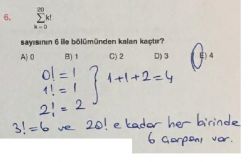 6. 20
∑ k!
k=0
sayısının 6 ile bölümünden kalan kaçtır?
A) 0 B) 1 C) 2 D) 3 E) 4
0! = 1
1! = 1 } 1+1+2=4
2! = 2
3! = 6 ve 20! e kadar her birinde
6 çarpanı var.